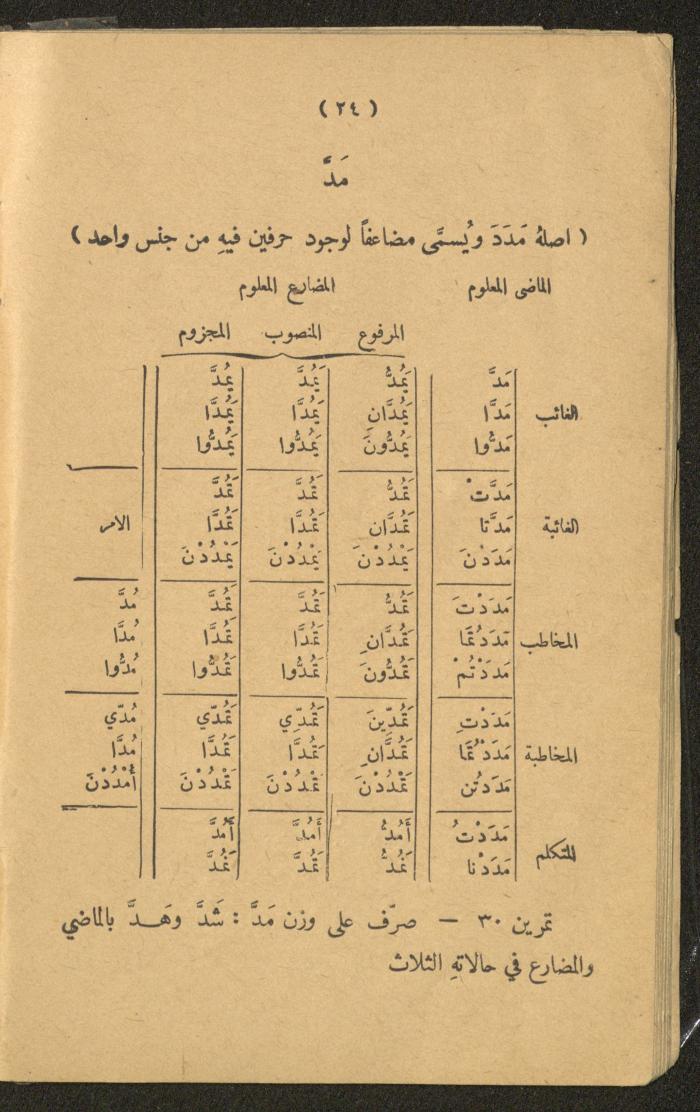 ( ٢٤ )
مَدَّ
( اصلهُ مَدَدَ ويُسمَّى مضاعفاً لوجود حرفين فيهِ من جنس واحد )
الماضي المعلوم المضارع المعلوم
المرفوع المنصوب المجزوم
مَدَّ يَمُدُّ يَمُدَّ يَمُدَّ
الغائب مَدَّا يَمُدَّانِ يَمُدَّا يَمُدَّا
مَدُّوا يَمُدُّونَ يَمُدُّوا يَمُدُّوا
مَدَّتْ تَمُدُّ تَمُدَّ تَمُدَّ
الغائبة مَدَّتا تَمُدَّانِ تَمُدَّا تَمُدَّا الامر
مَدَدْنَ يَمْدُدْنَ يَمْدُدْنَ يَمْدُدْنَ
مَدَدْتَ تَمُدُّ تَمُدَّ تَمُدَّ مُدَّ
المخاطب مَدَدْتُمَا تَمُدَّانِ تَمُدَّا تَمُدَّا مُدَّا
مَدَدْتُمْ تَمُدُّونَ تَمُدُّوا تَمُدُّوا مُدُّوا
مَدَدْتِ تَمُدِّينَ تَمُدِّي تَمُدِّي مُدِّي
المخاطبة مَدَدْتُمَا تَمُدَّانِ تَمُدَّا تَمُدَّا مُدَّا
مَدَدْتُن تَمْدُدْنَ تَمْدُدْنَ تَمْدُدْنَ أُمْدُدْنَ
مَدَدْتُ أَمُدُّ أَمُدَّ أَمُدَّ
المتكلم مَدَدْنا نَمُدُّ نَمُدَّ نَمُدَّ
تمرين ٣٠ — صرّف على وزن مَدَّ : شَدَّ وهَدَّ بالماضي
والمضارع في حالاتهِ الثلاث